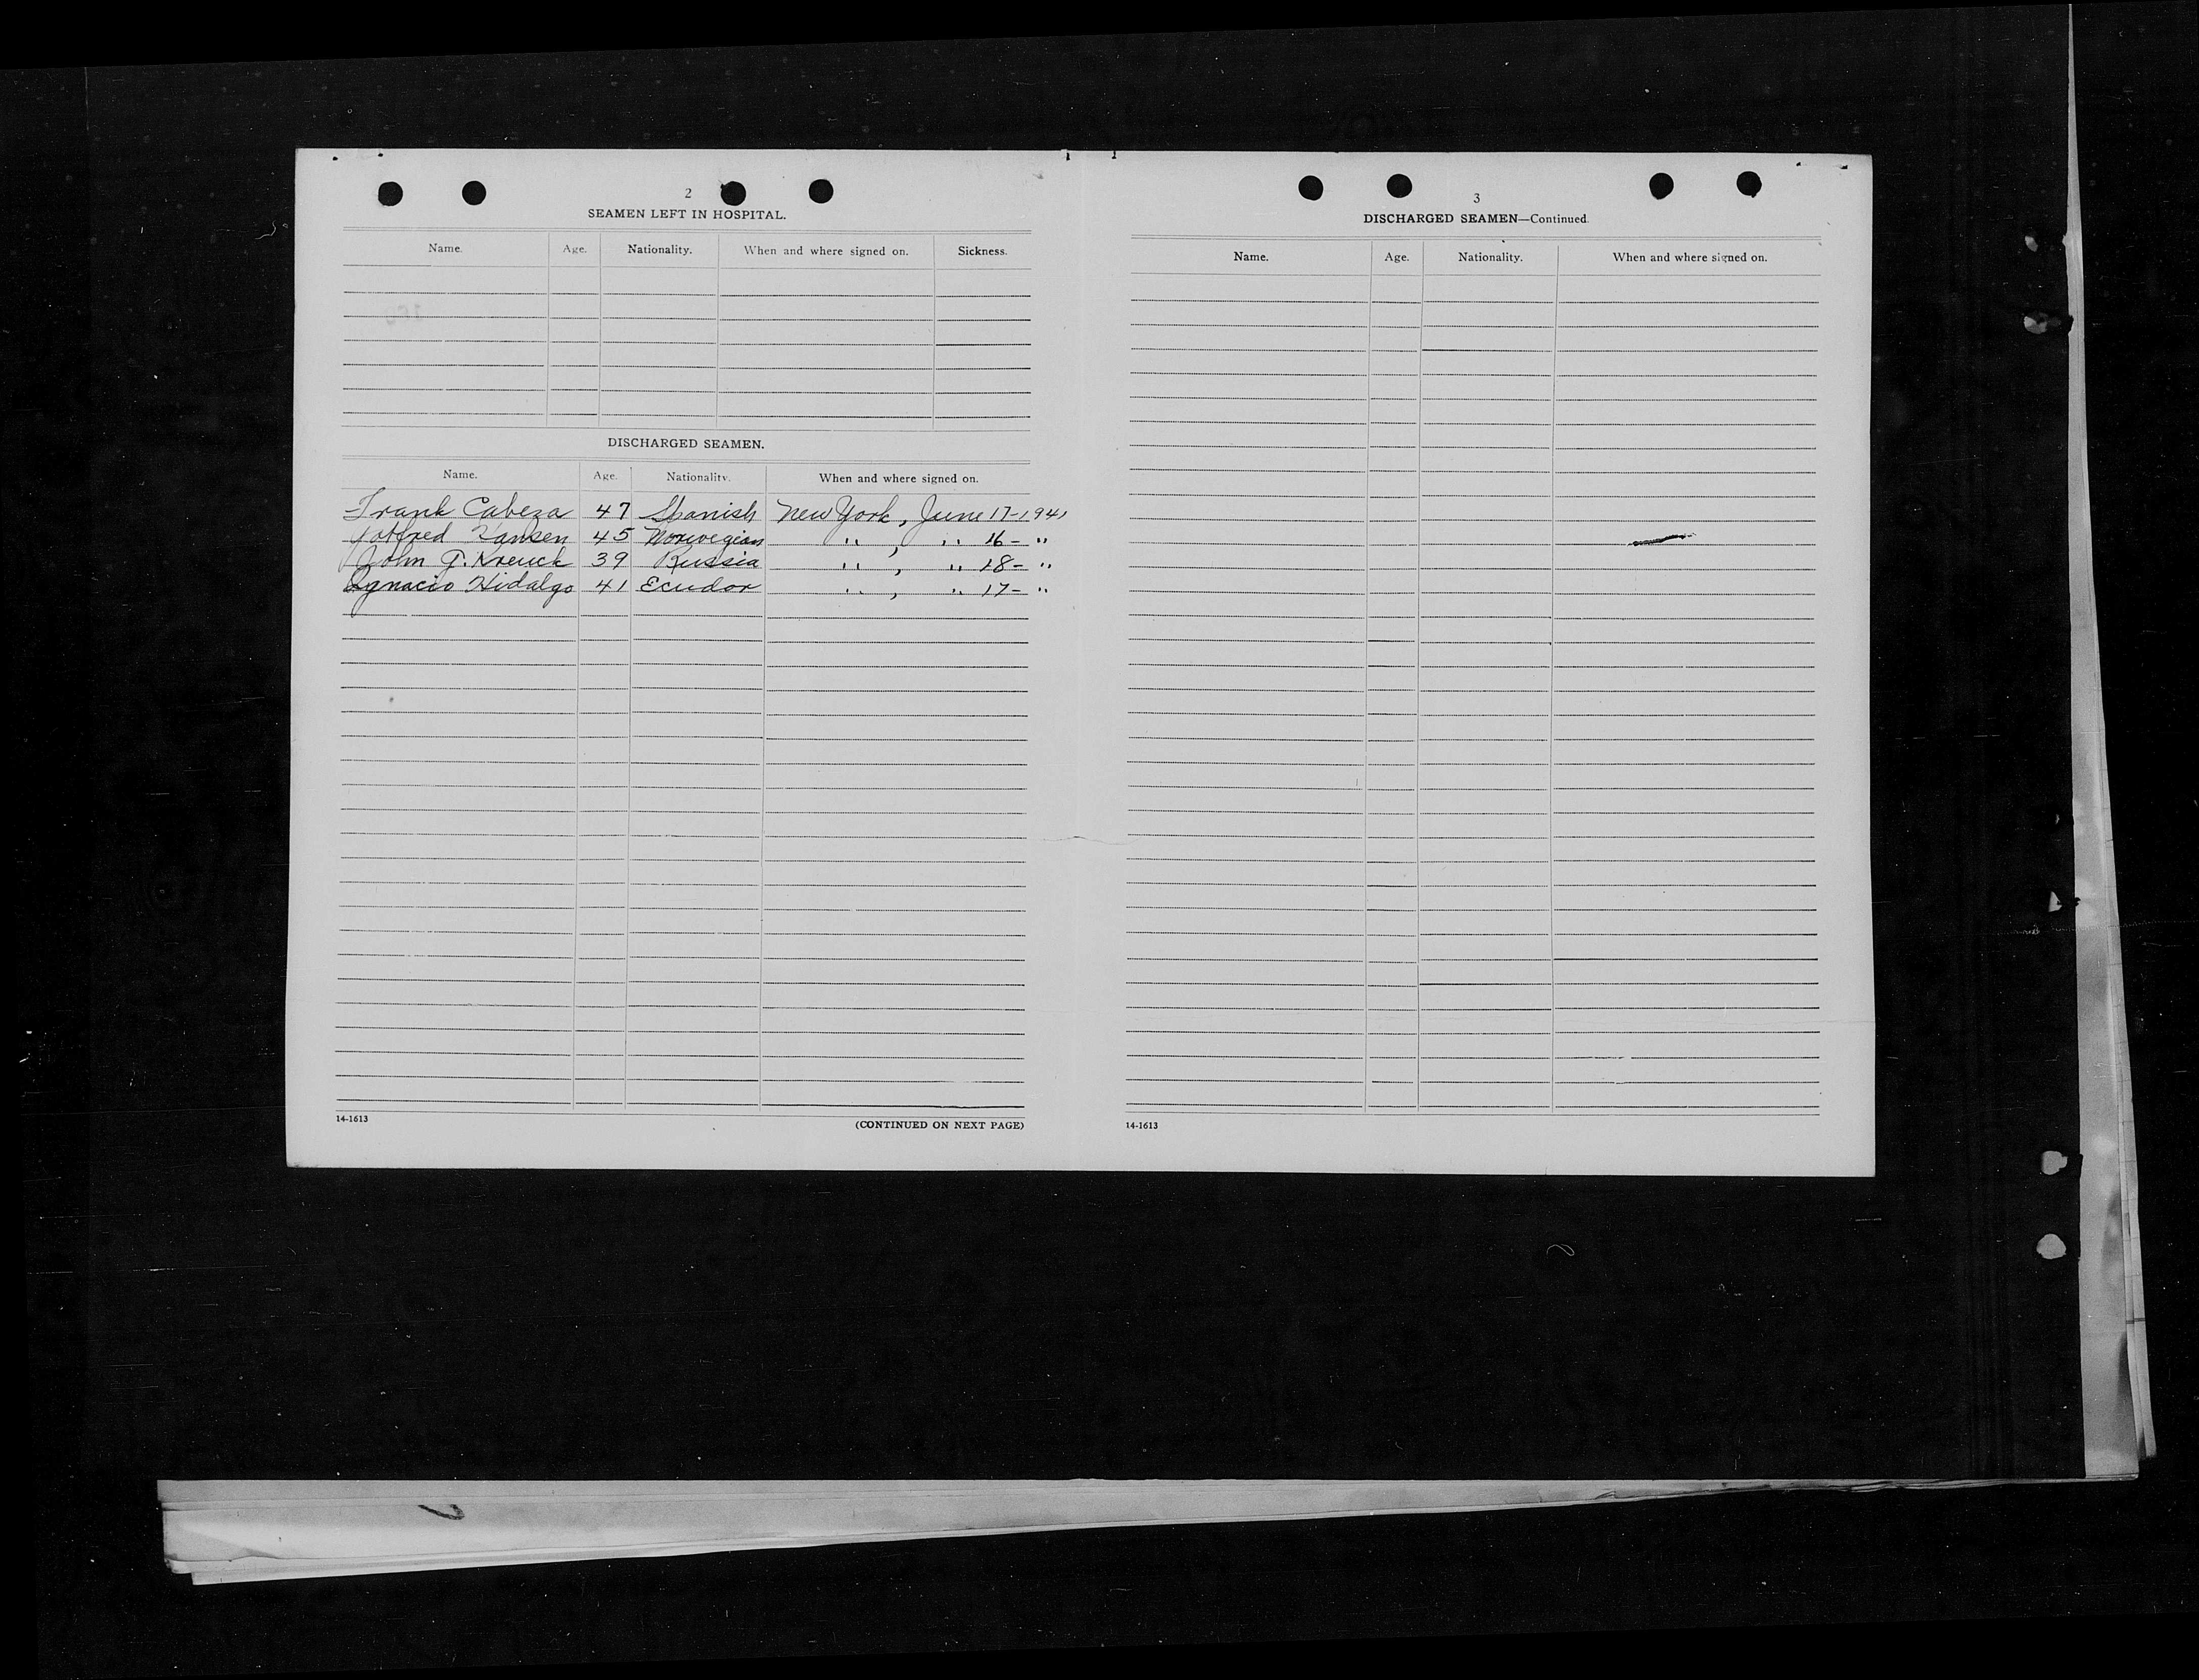 2
SEAMEN LEFT IN HOSPITAL.
Name. Age. Nationality. When and where signed on. Sickness.
DISCHARGED SEAMEN.
Name. Age. Nationality. When and where signed on.
Frank Cabeza 47 Spanish New York, June 17-1941
Hansen 45 Norwegian " , " 16- "
John G. Kreuck 39 Russia " , " 18- "
Ignacio Hidalgo 41 Ecudor " , " 17- "
14-1613 (CONTINUED ON NEXT PAGE)
3
DISCHARGED SEAMEN—Continued.
Name. Age. Nationality. When and where signed on.
14-1613